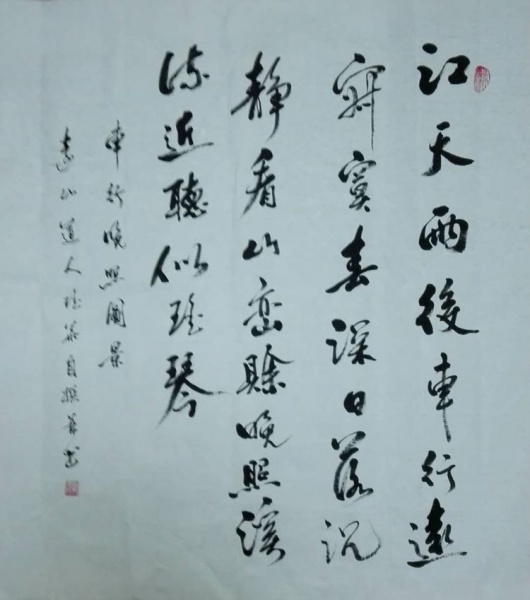 江天雨後車行遠
寂寞春深日落沉
靜看山峦賒晚照溪
流近聽似瑤琴
車行晚照圖景
山道人自撰并书